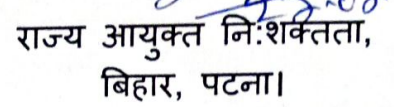 राज्य आयुक्त निःशक्तता,
बिहार, पटना।